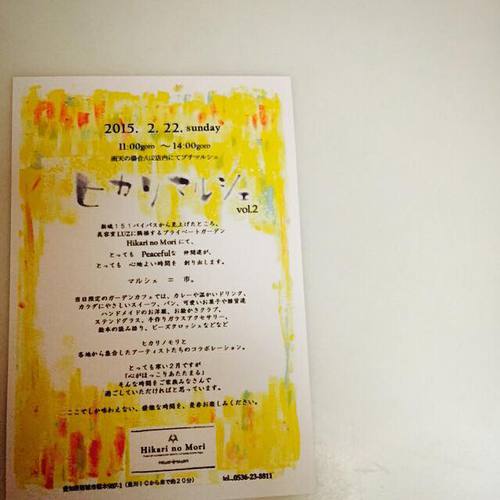 2015. 2. 22. sunday
11:00goro ～14:00goro
雨天の場合は店内にてプチマルシェ
ヒカリマルシェ
vol.2
新城151バイパスから見上げたところ、
美容室LUZに隣接するプライベートガーデン
Hikari no Moriにて、
とっても Peacefulな 仲間達が、
とっても 心地よい時間を 創り出します。
マルシェ ＝ 市。
当日限定のガーデンカフェでは、カレーや温かいドリンク、
カラダにやさしいスイーツ、パン、可愛いお菓子や雑貨達
ハンドメイドのお洋服、お絵かきクラブ、
ステンドグラス、手作りガラスアクセサリー、
絵本の読み語り、ビーズクロッシェなどなど
ヒカリノモリと
各地から集合したアーティストたちのコラボレーション。
とっても寒い2月ですが
「心がほっこりあたたまる」
そんな時間をご家族みなさんで
過ごしていただければと思っています。
ここでしか味わえない、素敵な時間を、是非お楽しみください。
Hikari no Mori
tel..0536-23-8811